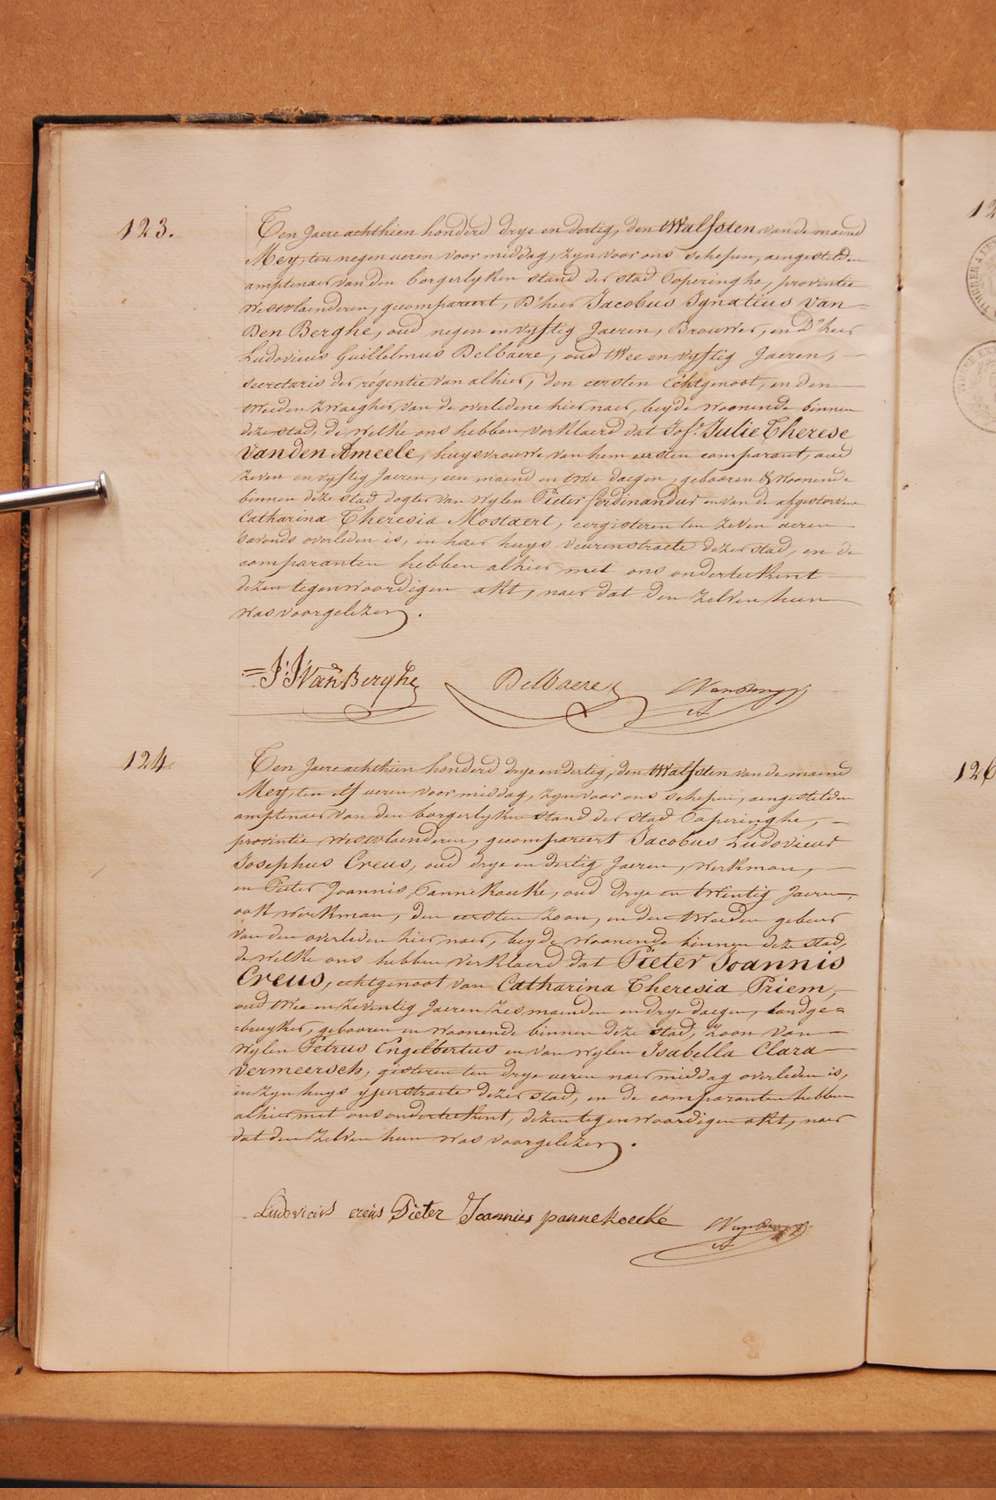 123.
Ten Jaere achthien honderd drye en dertig, den twalfsten van de maend
Mey, ten negen ueren voor middag, zyn voor ons schepen, aengestelden
amptenaer van den borgerlyken stand der stad Poperinghe, provintie
westvlaenderen, gecompareert, D'heer Jacobus Ignatius Van-
Den Berghe, oud negen en vyftig Jaeren, Brouwer, en D'heer
Ludovicus Guillelmus Delbaere, oud twee en vyftig Jaeren,
secretaris der régentie van alhier, den eersten echtgenoot, en den
tweeden zwaegher van de overledene hier naer, beyde woonende binnen
deze stad, de welke ons hebben verklaerd dat Jof.r Julie Therese
Vanden Ameele, huysvrouwe van hem eersten comparant, oud
zeven en vyftig Jaeren, een maend en twee daegen, gebooren & woonende
binnen deze stad dogter van wylen Pieter ferdinandus en van de afgestorvene
Catharina Theresia Mostaert, eergisteren ten zeven ueren
s'avonds overleden is, in haer huys veurenstraete dezer stad, en de
comparanten hebben alhier met ons onderteekent
dezen tegenwoordigen akt, naer dat den zelven hun
was voorgelezen.
J: J: Van Berghe Delbaere
124.
Ten Jaere achthien honderd drye en dertig, den twalfsten van de maend
Mey, ten elf ueren voor middag, zyn voor ons schepen, aengestelden
amptenaer van den borgerlyken stand der stad Poperinghe,
provintie westvlaenderen, gecompareert Jacobus Ludovicus
Josephus Creus, oud drye en dertig Jaeren, werkman,
en Pieter Joannis Pannekoecke, oud drye en twentig Jaeren,
ook werkman, den eersten zoon, en den tweeden gebeur
van den overleden hier naer, beyde woonende binnen deze stad,
de welke ons hebben verklaerd dat Pieter Joannis
Creus, echtgenoot van Catharina Theresia Priem,
oud twee en zeventig Jaeren zes maenden en drye daegen, landge=
=bruyker, gebooren en woonende binnen deze stad, zoon van
wylen Petrus Engelbertus en van wylen Isabella Clara
Vermeersch, gisteren ten drye ueren naer middag overleden is,
in zyn huys yperstraete dezer stad, en de comparanten hebben
alhier met ons onderteekent, dezen tegenwoordigen akt, naer
dat den zelven hun was voorgelezen.
Ludovicus creus Pieter Joannies pannekoecke
126